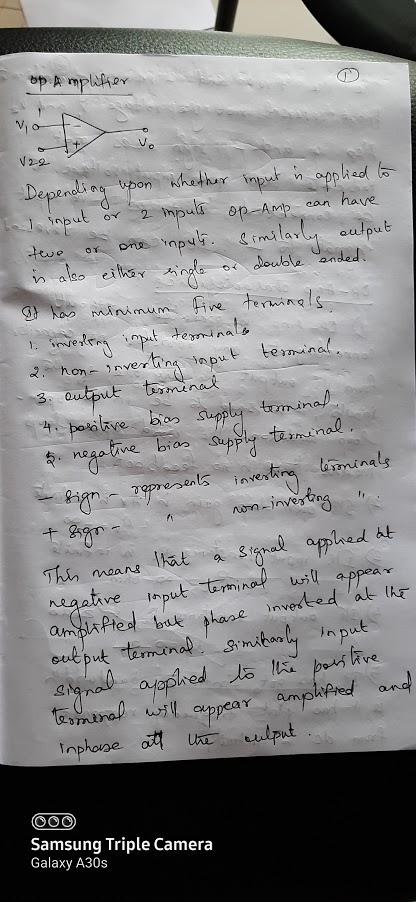 Op. Amplifier
1
1
V1
−
+
V2 2
Vo
Depending upon whether input is applied to
1 input or 2 inputs op-Amp can have
two or one inputs. Similarly output
is also either single or double ended.
It has minimum Five terminals.
1. inverting input terminals
2. non-inverting input terminal.
3. output terminal
4. positive bias supply terminal.
5. negative bias supply terminal.
− sign - represents inverting terminals
+ sign - " non-inverting ".
This means that a signal applied at
negative input terminal will appear
amplified but phase inverted at the
output terminal. Similarly input
signal applied to the positive
terminal will appear amplified and
inphase at the output.
Samsung Triple Camera
Galaxy A30s